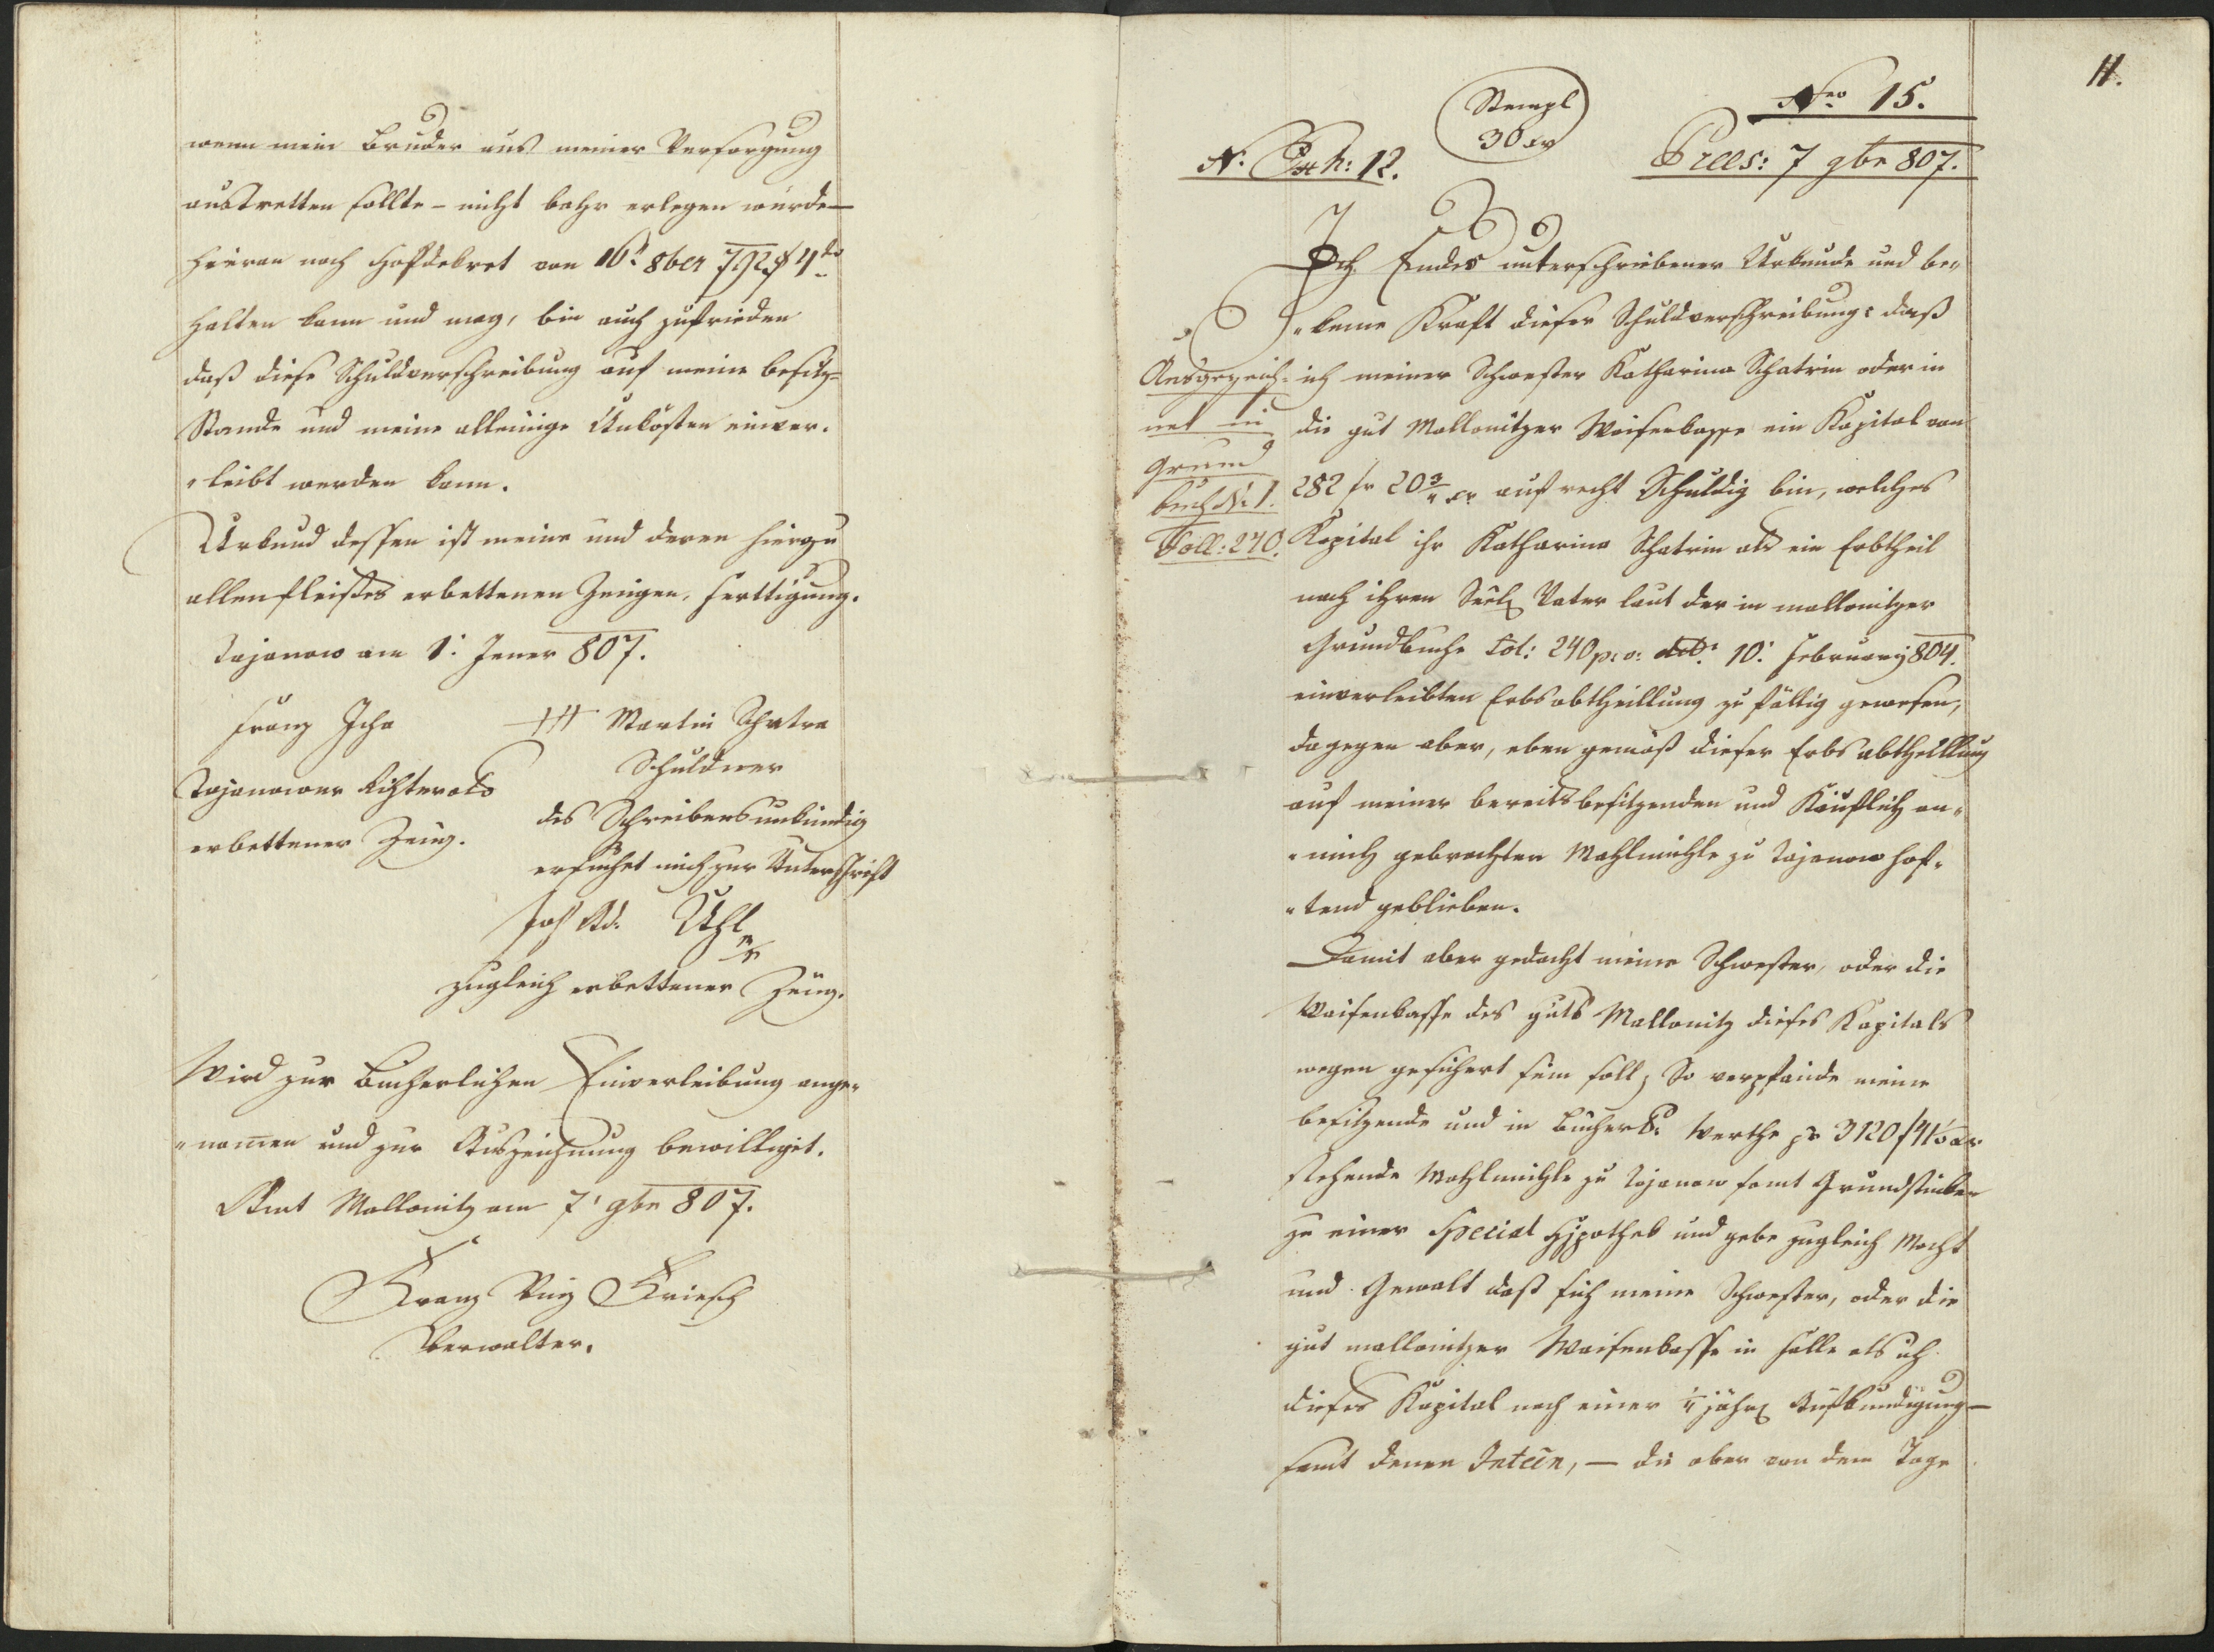 wenn mein Bruder aus meiner Versorgung
austretten sollte - nicht bahr erlegen würde -
hieran nach Hofdekret von 16t 8ber 792 § 4to
halten kann und mag, bin auch zufrieden
daß diese Schuldverschreibung auf meine besitz=
Stande und meine alleinige Unkösten einver„
„leibt werden kann.
Urkund dessen ist meine und deren hierzu
allenfleißes erbettenen Zeugen, Ferttigung.
Tajanow am 1t Jener 807.
Franz Icha +++ Martin Schatra
Schuldner
Tajanower Richter als
des Schreibens unkündig
erbettener Zeug.
ersuchet mich zur Unterschrift
Uhl
zugleich erbettener Zeug.
Wird zur Bucherlichen Einverleibung ange„
„nomen und zur Auszeichnung bewilliget.
Amt Mallonitz am 7t 9br 807.
Franz Kriesch
Verwalter.
11.
Nro 15.
Stempl
30 xr
N. Exh: 12.
Prees: 7 9br 807.
Ich Endes unterschriebener Urkunde und be„
„kenne Kraft dieser Schuldverschreibung: daß
ich meiner Schwester Katharina Schatrin oder in
die gut Mallonitzer Waisenkasse ein Kapital von
282 fr 20 3/4 xr aufrecht Schuldig bin, welches
Kapital ihr Katharina Schatrin als ein Erbtheil
nach ihren Seel. Vater laut der in mallonitzer
Grundbuche Fol: 240 p. v. dtd: 10t February 804.
einverleibten Erbsabtheillung zu fällig gewesen,
dagegen aber, eben gemäß dieser Erbsabtheillung
auf meiner bereits besitzenden und Käuflich an„
„mich gebrachten Mahlmühle zu Tajanow haf„
„tend geblieben.
Ausgezeich=
net in
Grund
buch N: 1.
Foll: 240.
Damit aber gedacht meine Schwester, oder die
Waisenkasse des guts Mallonitz dieses Kapitals
wegen gesichert sein soll; So verpfände meine
besitzende und in Bücher Werthe pr 3120 f 41 xr
stehende Mahlmühle zu Tajanow samt Grundstücken
zu einer Special Hypothek und gebe zugleich Macht
und Gewalt daß sich meine Schwester, oder die
gut mallonitzer Waisenkasse in Falle als ich
dieses Kapital nach einer 1/4 jähr. Aufkundigung -
samt denen Inteen, - die aber von dem Tage